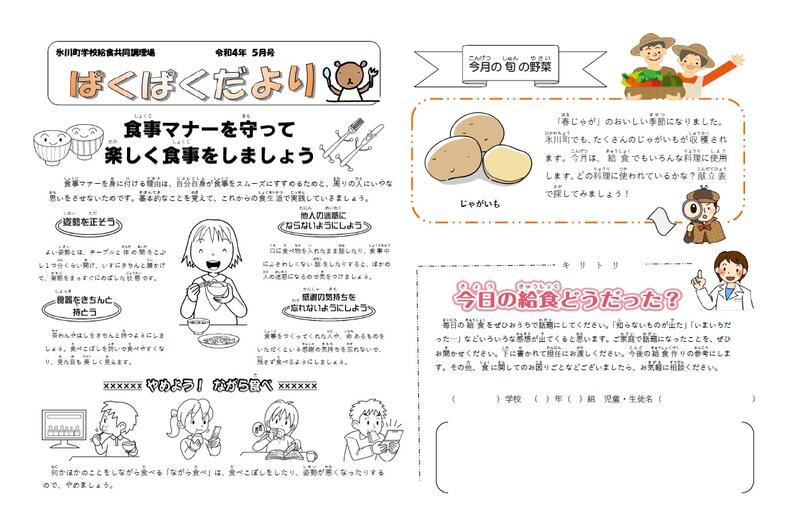 氷川町学校給食共同調理場　令和4年 5月号
ぱくぱくだより
食事マナーを守って
楽しく食事をしましょう
食事マナーを身に付ける理由は、自分自身が食事をスムーズにすすめるためと、周りの人にいやな
思いをさせないためです。基本的なことを覚えて、これからの食生活で実践していきましょう。
姿勢を正そう
よい姿勢とは、テーブルと体の間をこぶ
し1つ分くらい開け、いすにきちんと腰かけ
て、背筋をまっすぐにのばした状態です。
食器をきちんと
持とう
茶わんやはしをきちんと持つようにしま
しょう。食べこぼしを防いで食べやすくな
り、見た目も美しく見えます。
他人の迷惑に
ならないようにしよう
口に食べ物を入れたまま話したり、食事中
にふさわしくない話をしたりすると、ほかの
人の迷惑になるので気をつけましょう。
感謝の気持ちを
忘れないようにしよう
食事をつくってくれた人や、命あるものを
いただくという感謝の気持ちを忘れないで、
残さず食べるようにしましょう。
××××××　やめよう！ ながら食べ　××××××
何かほかのことをしながら食べる「ながら食べ」は、食べこぼしをしたり、姿勢が悪くなったりする
ので、やめましょう。
今月の旬の野菜
「春じゃが」のおいしい季節になりました。
氷川町でも、たくさんのじゃがいもが収穫され
ます。今月は、給食でもいろんな料理に使用
します。どの料理に使われているかな？献立表
で探してみましょう！
じゃがいも
キリトリ
今日の給食どうだった？
毎日の給食をぜひおうちで話題にしてください。「知らないものが出た」「いまいちだ
った…」などいろいろな感想が出てくると思います。ご家庭で話題になったことを、ぜひ
お聞かせください。下に書かれて担任にお渡しください。今後の給食作りの参考にしま
す。その他、食に関してのお困りごとなどございましたら、お気軽に相談ください。
（　　　　　）学校　（　）年（　）組　児童・生徒名（　　　　　　　　　　）